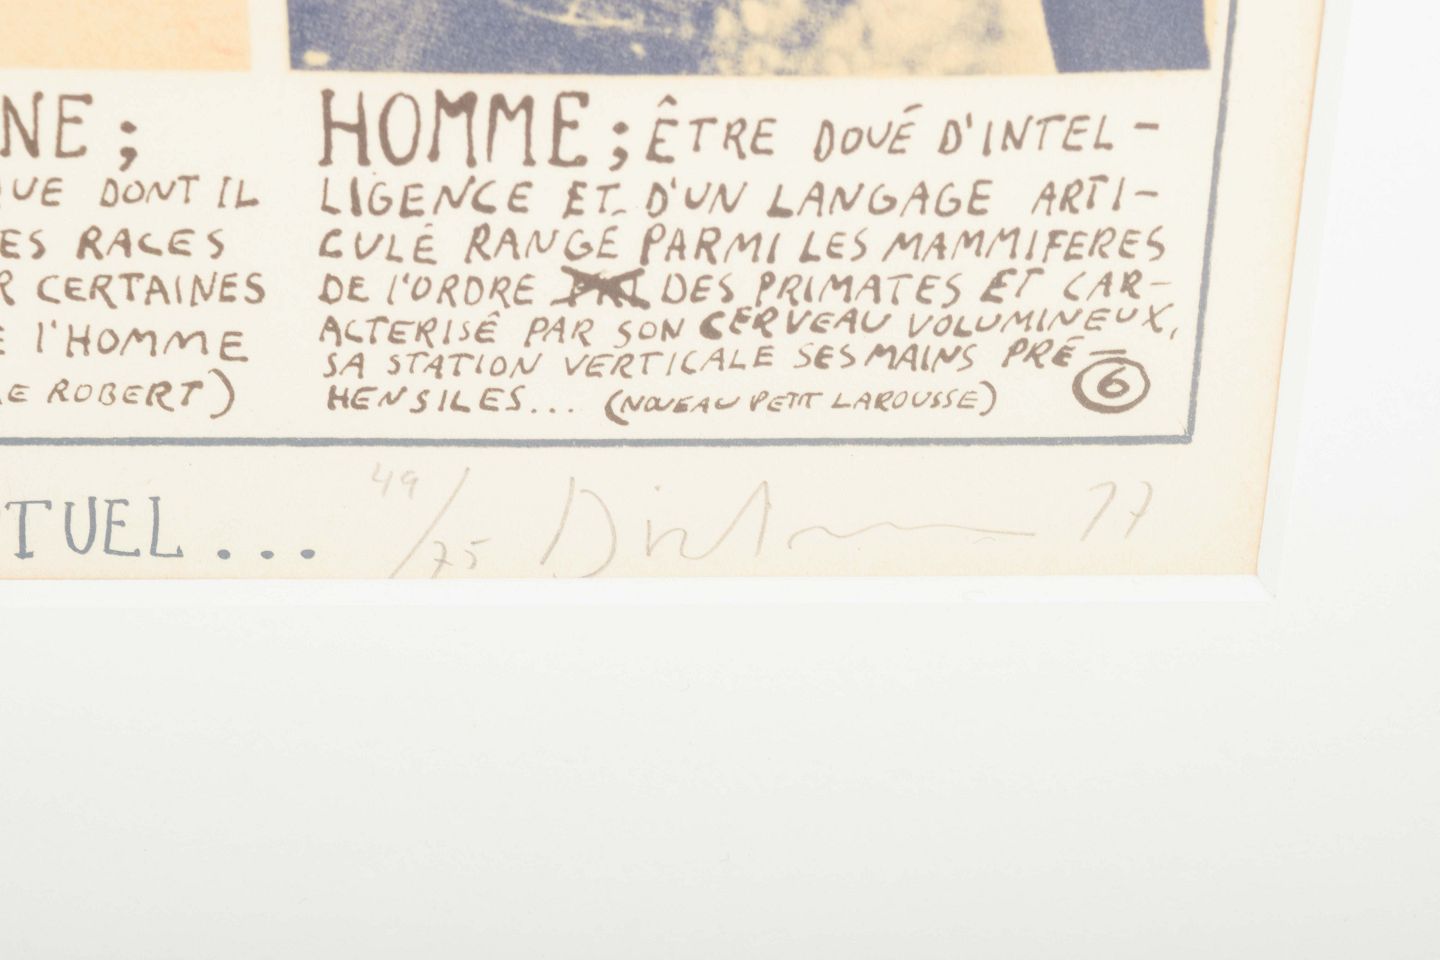 NE ;
UE DONT IL
ES RACES
R CERTAINES
E l'HOMME
LE ROBERT)
HOMME ; ÊTRE DOUÉ D'INTEL-
LIGENCE ET D'UN LANGAGE ARTI-
CULÉ RANGÉ PARMI LES MAMMIFERES
DE l'ORDRE DES PRIMATES ET CAR-
ACTERISÊ PAR SON CERVEAU VOLUMINEUX,
SA STATION VERTICALE SES MAINS PRÉ-
HENSILES... (NOUEAU PETIT LAROUSSE)
6
TUEL...
49/75 77